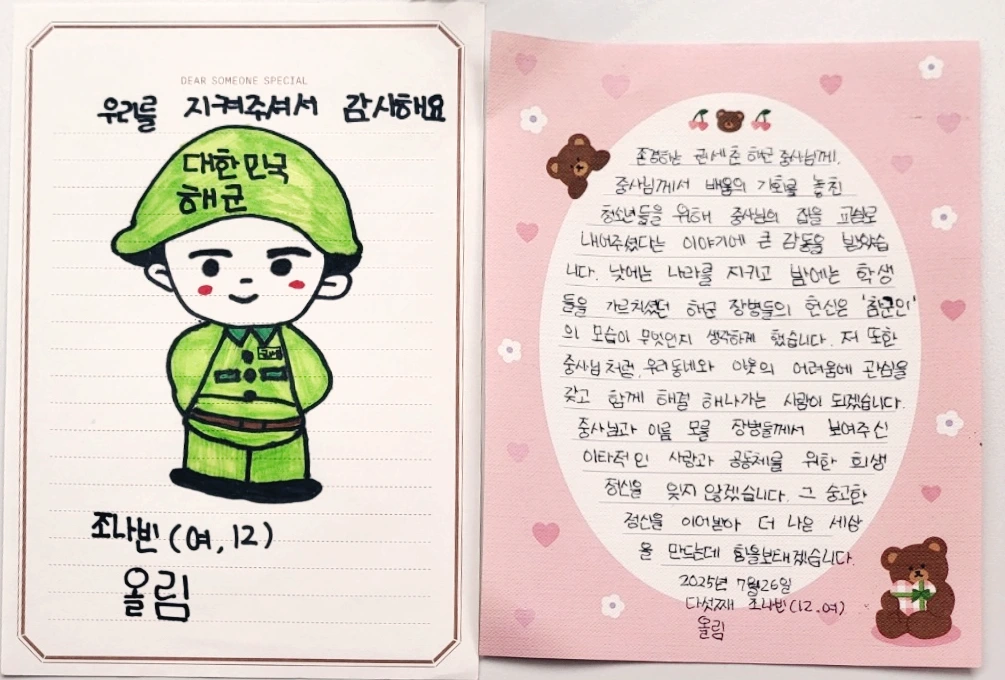 DEAR SOMEONE SPECIAL
우리를 지켜주셔서 감사해요
대한민국
해군
조나빈 (여, 12)
올림
존경하는 권세춘 해군 중사님께.
중사님께서 배움의 기회를 놓친
청소년들을 위해 중사님의 집을 교실로
내어주셨다는 이야기에 큰 감동을 받았습
니다. 낮에는 나라를 지키고 밤에는 학생
들을 가르치셨던 해군 장병들의 헌신은 '참군인'
의 모습이 무엇인지 생각하게 했습니다. 저 또한
중사님처럼, 우리 동네와 이웃의 어려움에 관심을
갖고 함께 해결 해나가는 사람이 되겠습니다.
중사님과 이름 모를 장병들께서 보여주신
이타적인 사랑과 공동체를 위한 희생
정신을 잊지 않겠습니다. 그 숭고한
정신을 이어받아 더 나은 세상
을 만드는데 힘을보태겠습니다.
2025년 7월26일
다섯째 조나빈(12.여)
올림